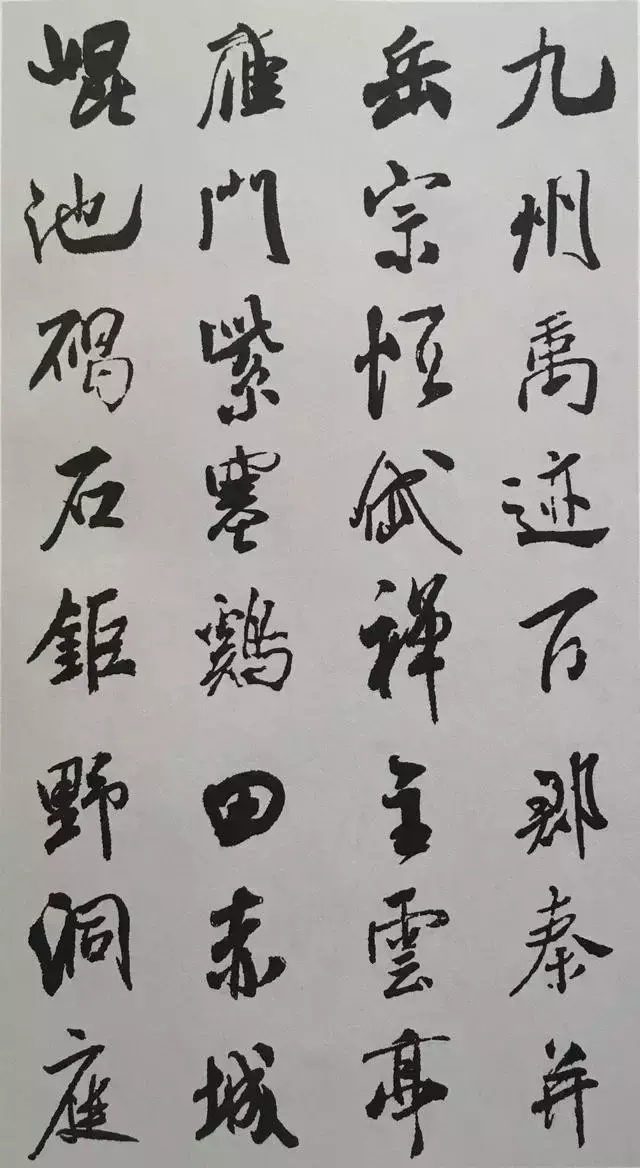 九州禹迹百郡秦并
岳宗恒岱禪主雲亭
雁門紫塞鷄田赤城
崐池碣石鉅野洞庭